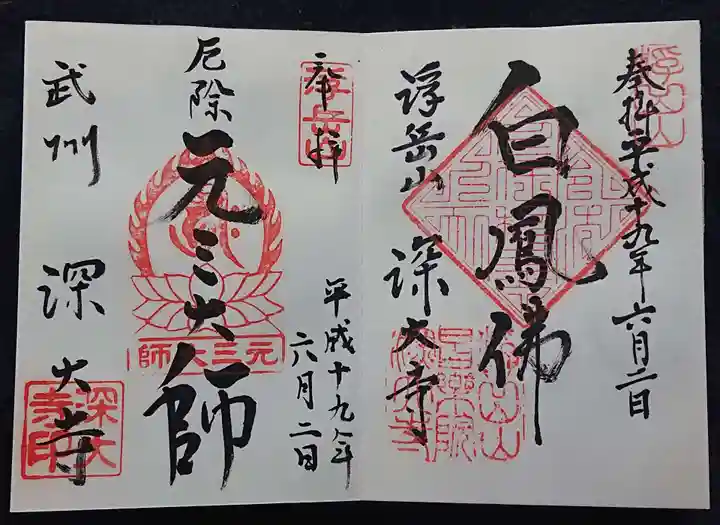 奉拝 平成十九年 六月二日
白鳳佛
浮岳山 深大寺
浮岳山
奉拝
平成十九年
六月二日
厄除 元三大師
元三大師
武州 深大寺
深大寺印